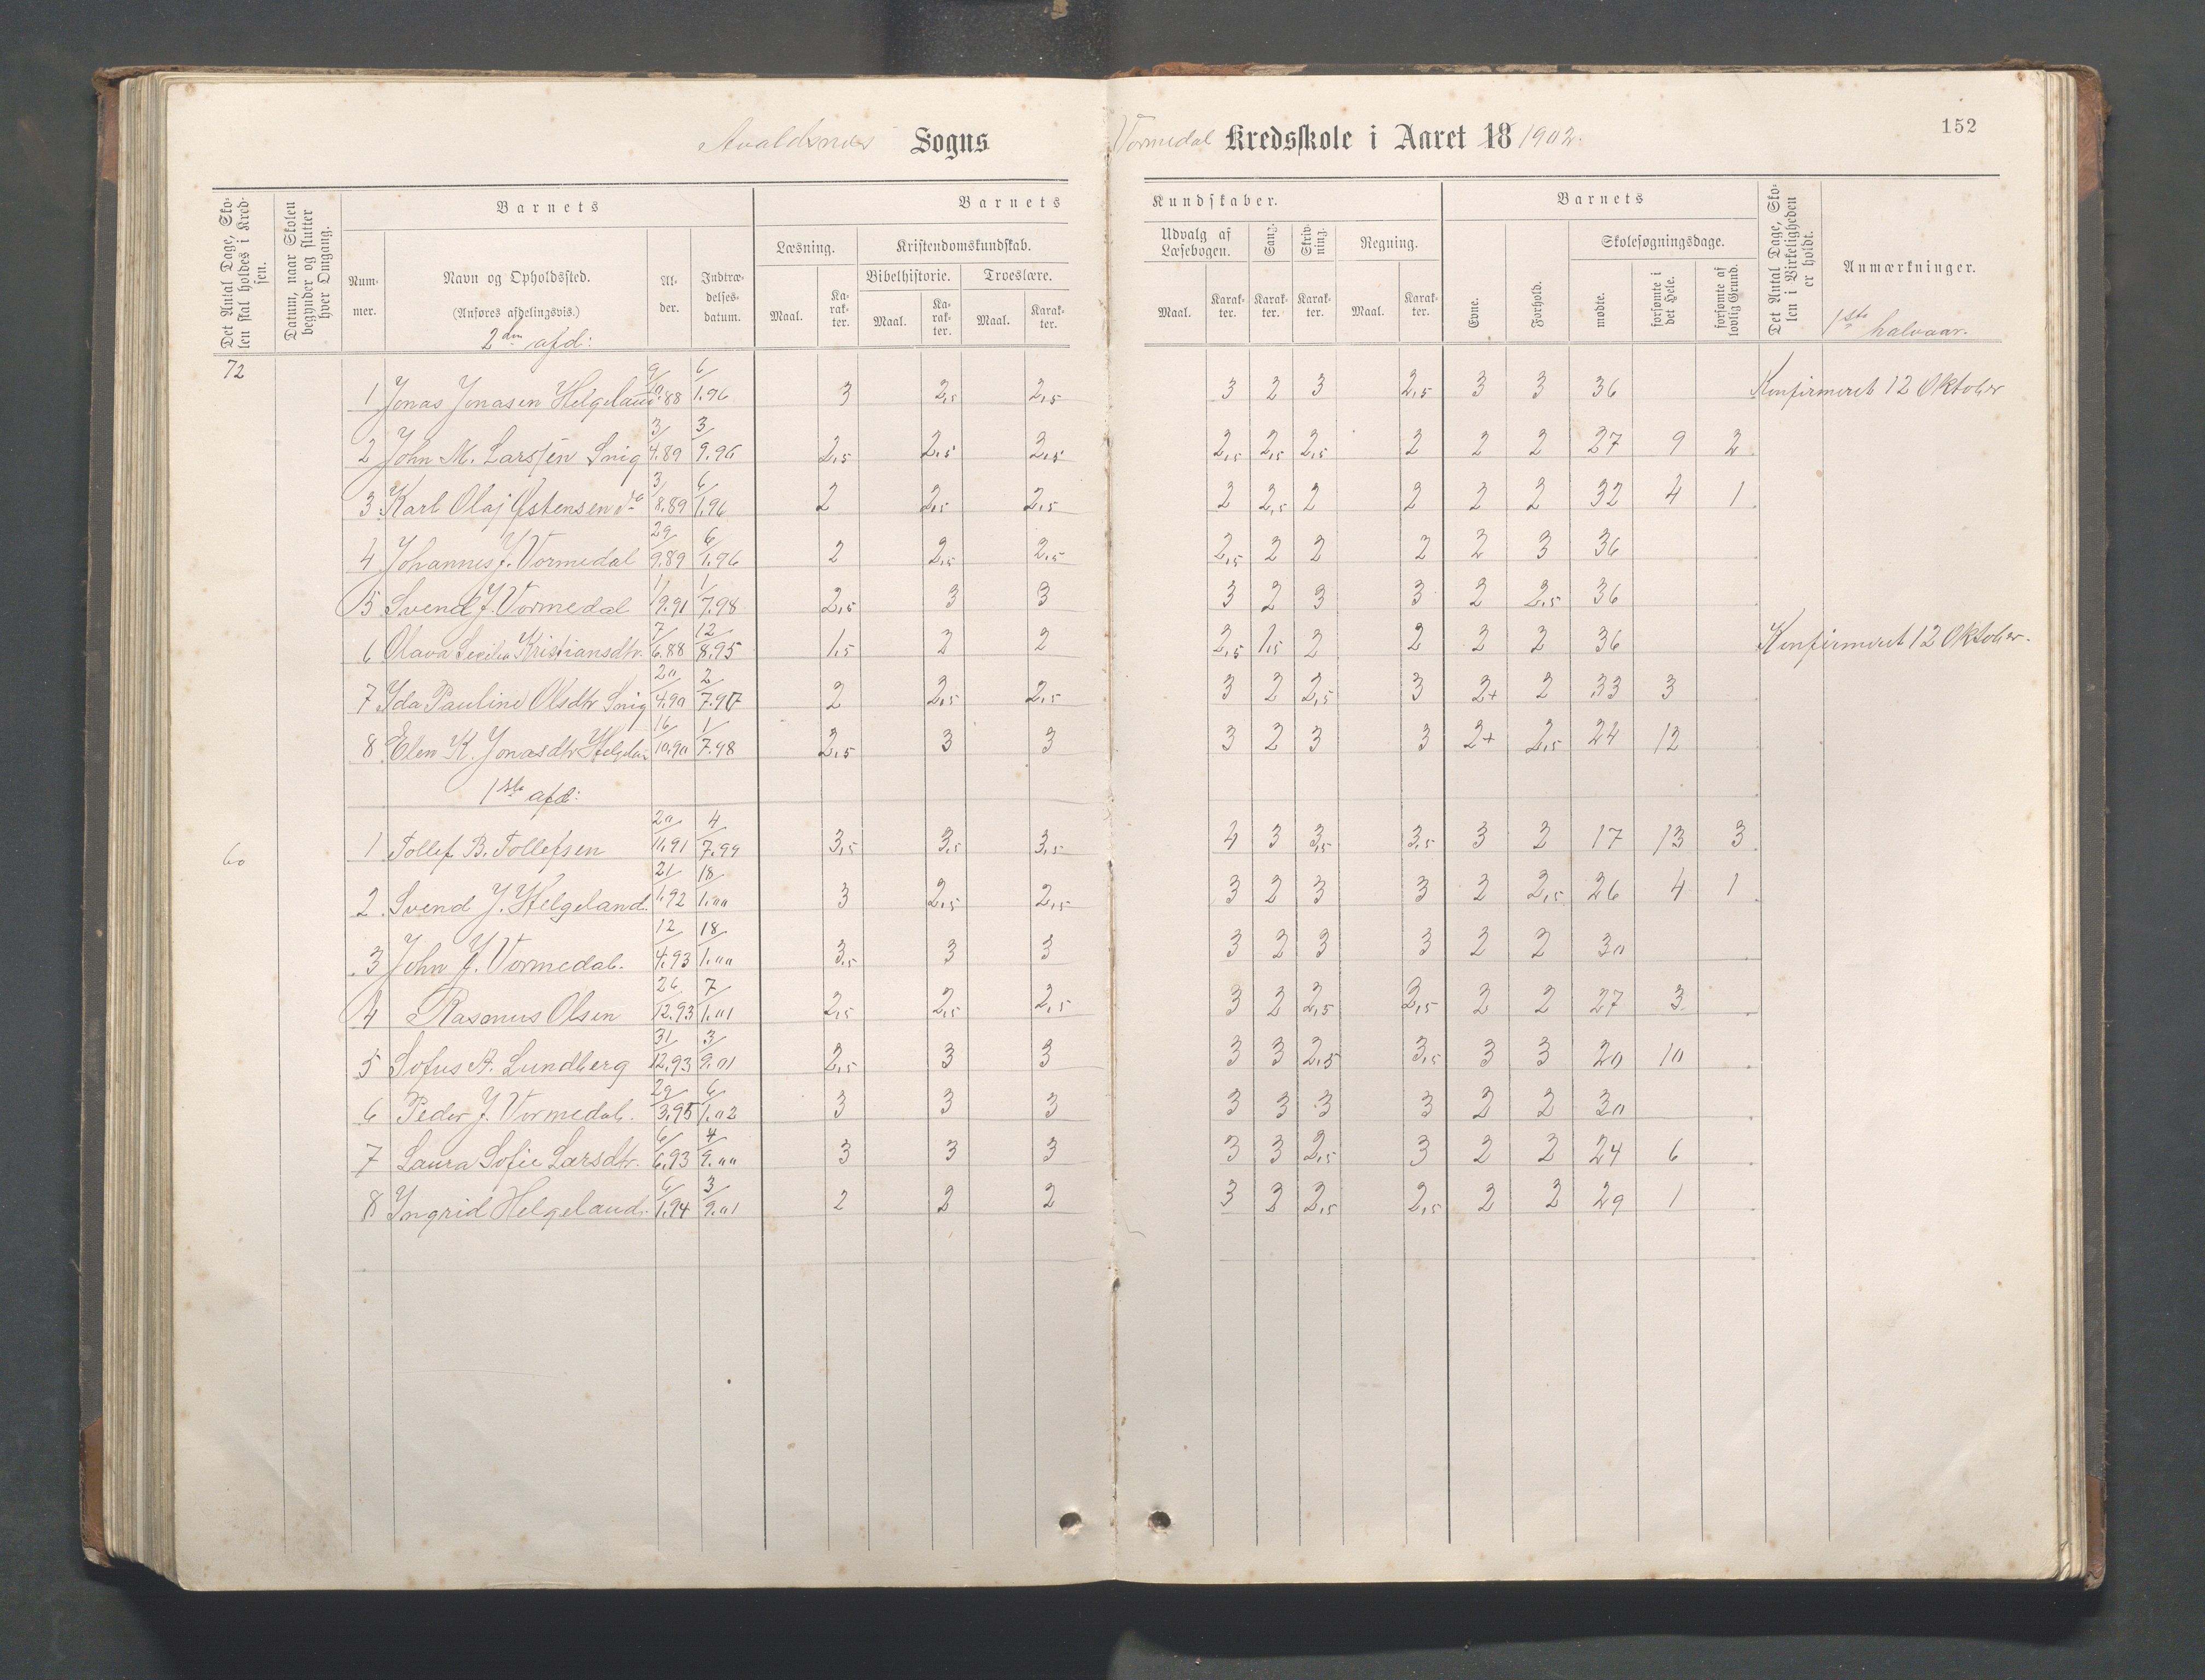 Avaldsnes Sogns
Vormedal Kredsskole i Aaret 18 1902.
152
Det Antal Dage, Skolen skal holdes i Kredsen.
Datum, naar Skolen begynder og slutter hver Omgang.
Barnets
Nummer.
Navn og Opholdssted.
(Anføres afdelingsvis.)
2den afd:
Alder.
Indtrædelsesdatum.
Barnets Kundskaber.
Læsning.
Maal.
Karakter.
Kristendomskundskab.
Bibelhistorie.
Maal.
Karakter.
Troeslære.
Maal.
Karakter.
Udvalg af Læsebogen.
Maal.
Karakter.
Sang.
Karakter.
Skrivning.
Karakter.
Regning.
Maal.
Karakter.
Barnets
Evne.
Forhold.
Skolesøgningsdage.
mødte.
forsømte i det Hele.
forsømte af lovlig Grund.
Det Antal Dage, Skolen i Virkeligheden er holdt.
Anmærkninger.
1ste halvaar.
72
1 Jonas Jonasen Helgeland 9/10.88 6/1.96 3 2,5 2,5 3 2 3 2,5 3 3 36 Konfirmeret 12 Oktober
2 John M. Larsen Snig 3/4.89 3/9.96 2,5 2,5 2,5 2,5 2,5 2,5 2 2 2 27 9 2
3 Karl Olaj Østensen do 3/8.89 6/1.96 2 2,5 2,5 2 2,5 2 2 2 2 32 4 1
4 Johannes J. Vormedal 29/9.89 6/1.96 2 2,5 2,5 2,5 2 2 2 2 3 36
5 Svend J. Vormedal 1/9.91 1/7.98 2,5 3 3 3 2 3 3 2 2,5 36
6 Olava Secilia Kristiansdtr. 7/6.88 12/8.95 1,5 2 2 2,5 1,5 2 2 2 2 36 Konfirmeret 12 Oktober.
7 Ida Pauline Olsdtr Snig 20/4.90 2/7.97 2 2,5 2,5 3 2 2,5 3 2+ 2 33 3
8 Elen K. Jonasdtr Helgelan 16/10.90 1/7.98 2,5 3 3 3 2 3 3 2+ 2,5 24 12
1ste afd:
60
1 Tollef B. Tollefsen 20/11.91 4/7.99 3,5 3,5 3,5 4 3 3,5 3,5 3 2 17 13 3
2 Svend J. Helgeland. 21/1.92 18/1.00 3 2,5 2,5 3 2 3 3 2 2,5 26 4 1
3 John J. Vormedal. 12/4.93 18/1.00 3,5 3 3 3 2 3 3 2 2 30
4 Rasmus Olsen 26/12.93 7/1.01 2,5 2,5 2,5 3 2 2,5 2,5 2 2 27 3
5 Sofus A. Lundberg 31/12.93 3/9.01 2,5 3 3 3 3 2,5 3,5 3 3 20 10
6 Peder J. Vormedal. 29/3.95 6/1.02 3 3 3 3 3 3 3 2 2 30
7 Laura Sofie Larsdtr. 6/6.93 4/9.00 3 3 3 3 3 2,5 3 2 2 24 6
8 Ingrid Helgeland. 6/1.94 3/9.01 2 2 2 3 2 2,5 2,5 2 2 29 1